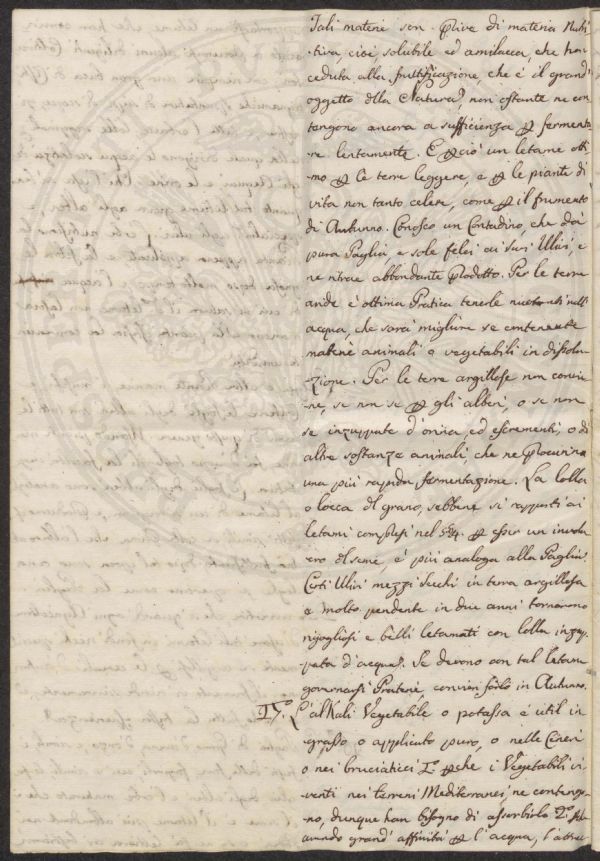 Tali materie son prive di materia Nutri-
tiva, cioè, solubile ed amilacea, che han
ceduta alla fruttificazione, che è il grand'
oggetto della Natura, non ostante ne con-
tengono ancora a sufficienza per fermenta-
re lentamente. E perciò un letame otti-
mo per le terre leggere, e per le piante di
vita non tanto celere, come per il frumento
di Autunno. Conosco un Contadino, che dà
pura Paglia, e sole felci ai suoi Ulivi, e
ne ritrae abbondante Prodotto. Per le terre
aride è ottima Pratica tenerle nell'
acqua, che sarà migliore se contenente
materie animali e vegetabili in dissolu-
zione. Per le terre argillose non convie-
ne, se non se per gli alberi, o se non
se inzuppate d'orina, ed escrementi, o di
altre sostanze animali, che ne procurino
una più rapida fermentazione. La lolla
o locca del grano, sebbene si rapporti ai
letami complessi nel per esser un invilu-
cro del seme, è più analoga alla Paglia.
Certi Ulivi mezzi secchi in terra argillosa
e molto pendente in due anni tornarono
rigogliosi e belli letamati con lolla inzup-
pata d'acqua. Se devono con tal letame
governarsi Praterie, convien farlo in Autunno.
17.° L'alKali Vegetabile o potassa è util in-
grasso o applicato puro, o nelle Ceneri
o nei bruciaticci 1.° perche i Vegetabili vi-
venti nei terreni Mediterranei ne contengo-
no, dunque han bisogno di assorbirlo 2.°
avendo grand' affinità per l'acqua, l'attrae